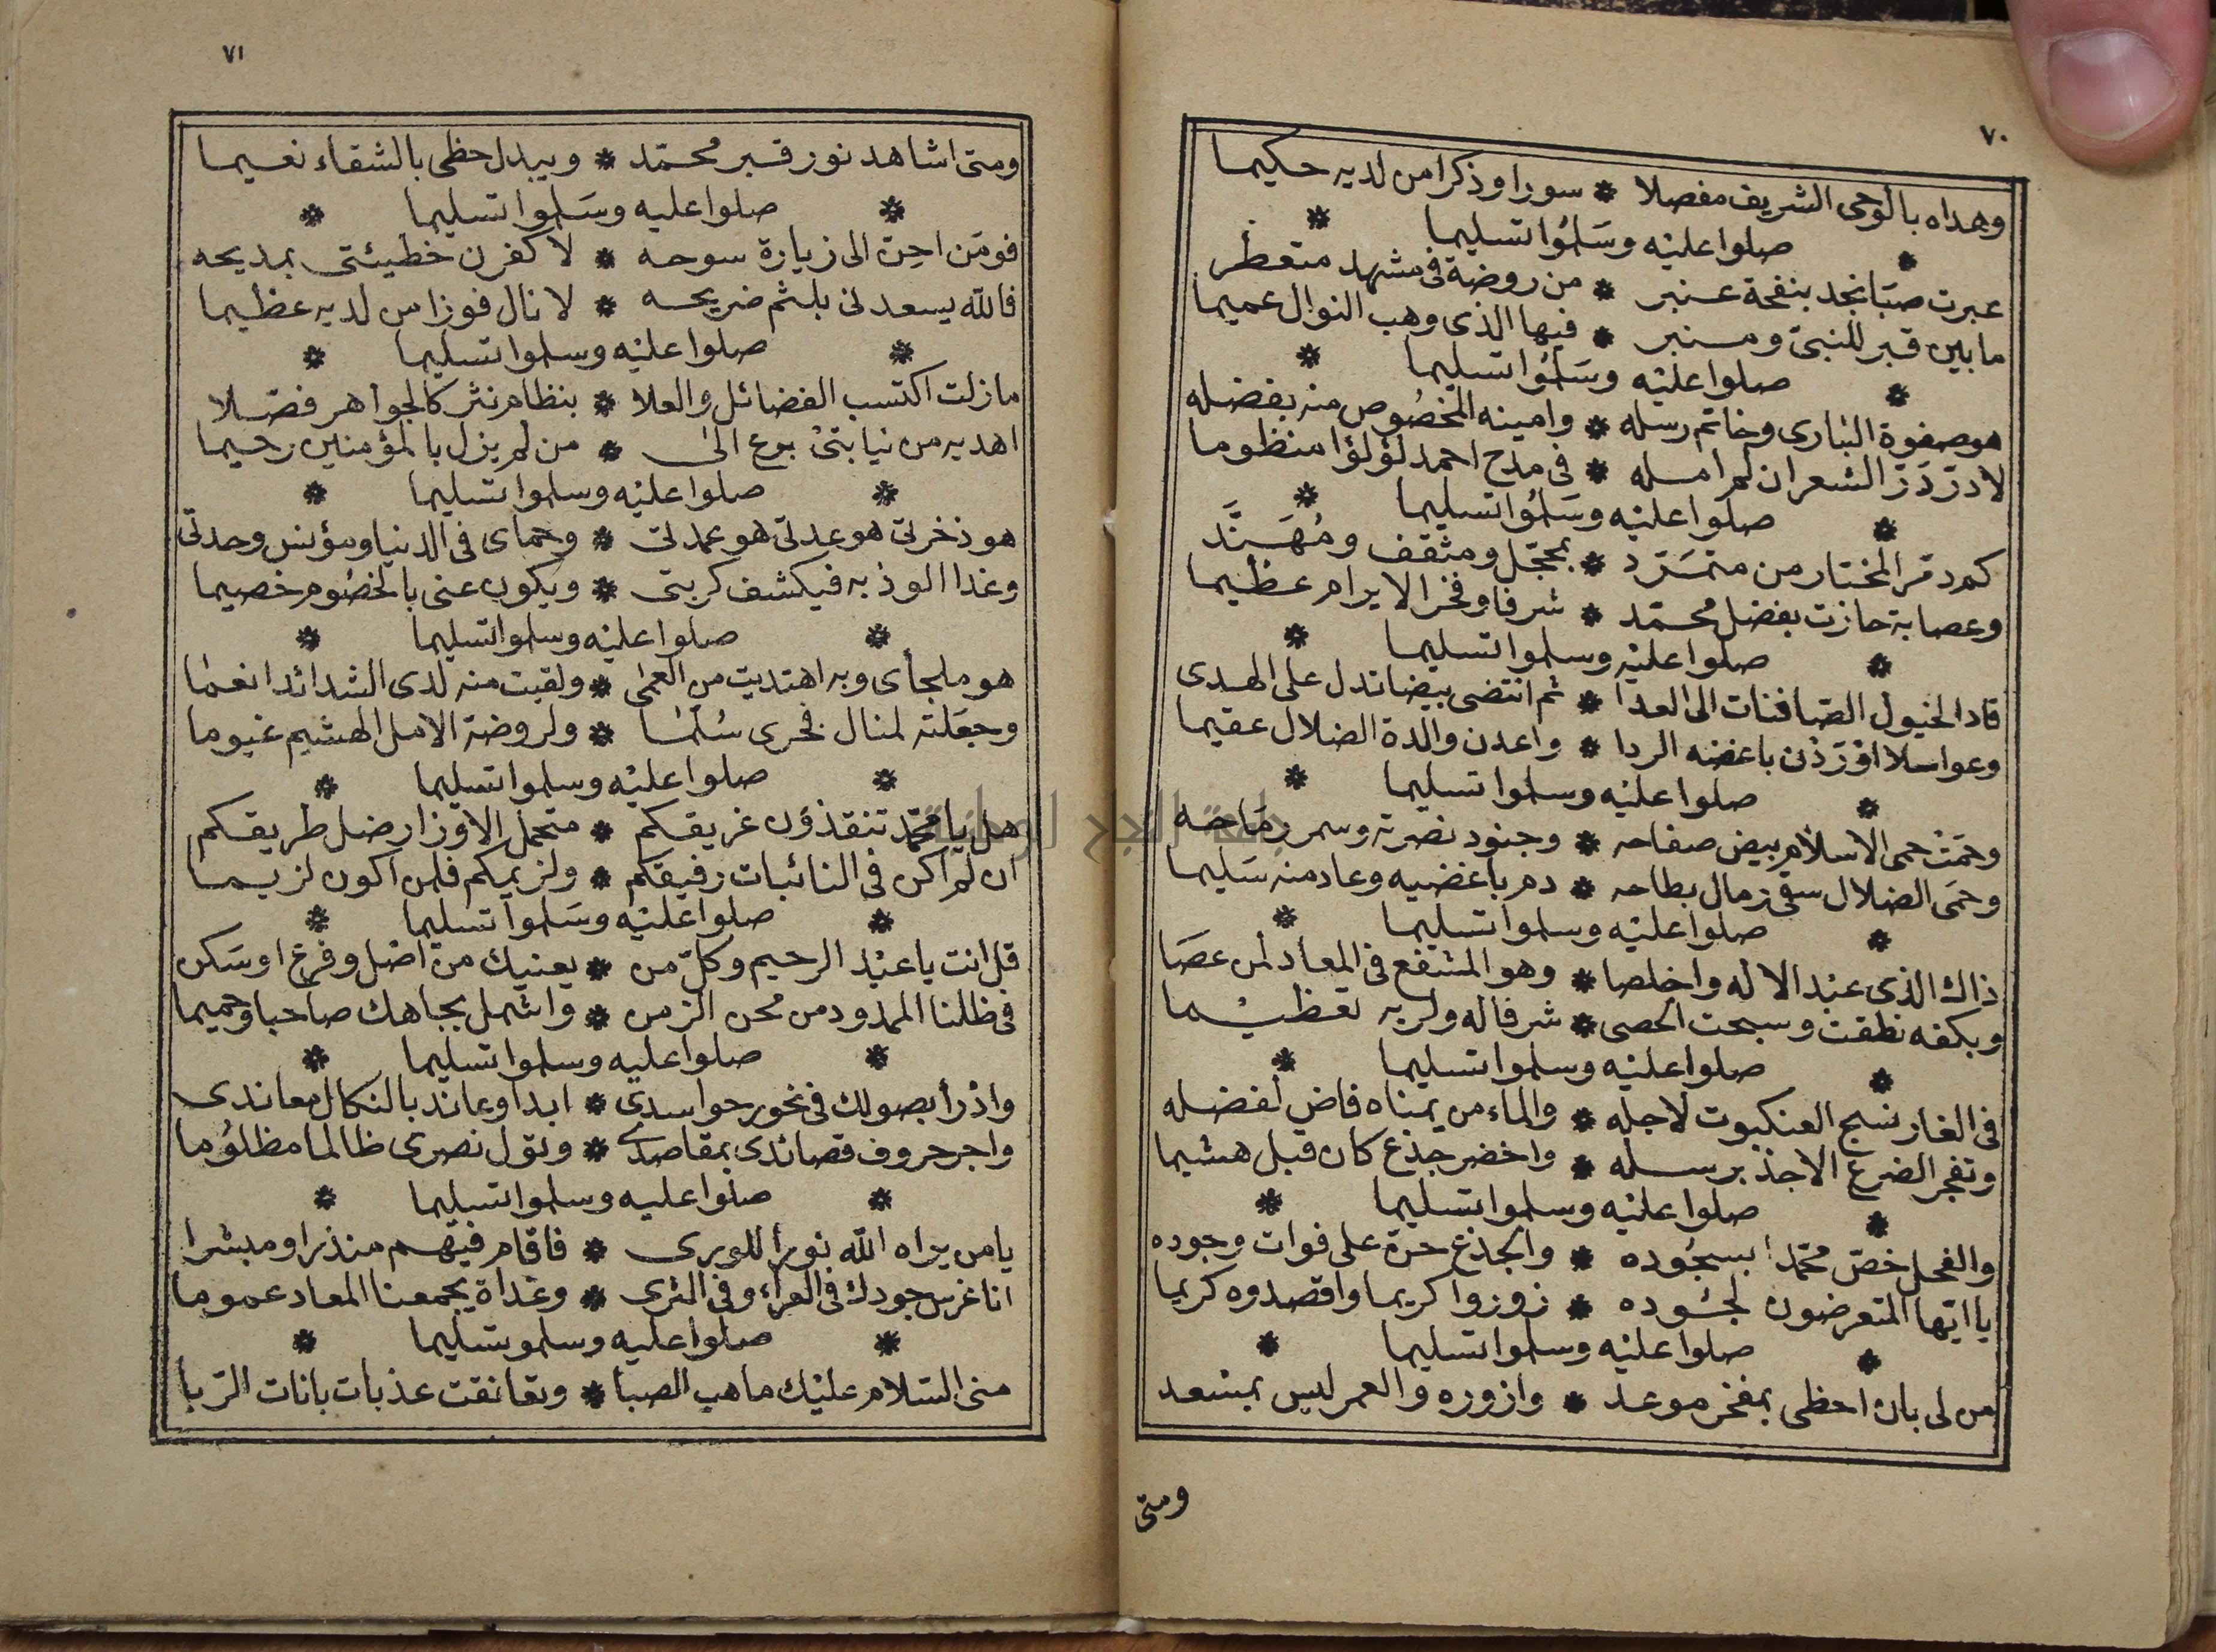 ٧٠
وهداه بالوحى الشريف مفصلا * سورا وذكرا من لديه حكيما
* صلوا عليه وسَلمُوا تسليما *
عبرت صبَا نجد بنفحة عنبر * من روضة فى مشهد متعطر
ما بين قبر للنبىّ ومنبر * فيها الذى وهب النوال عميما
* صلوا عليْه وسَلمُوا تسليما *
هو صفوة البارى وخاتم رسله * وامينه المخصُوص منه بفضله
لا درّ دَرّ الشعر ان لم امله * فى مدح احمد لؤلؤا منظوما
* صلوا عليْه وسَلمُوا تسليما *
كم دمّر المختار من متمَرّد * بمحجّل ومثقف ومُهَنَّد
وعصابة حازت بفضل محمّد * شرفا وفخرا لا يرام عظيما
* صلوا عليْه وسلموا تسليما *
قاد الخيول الصّافنات الى العدا * ثم انتضى بيضا تدل على الهدى
وعواسلا اوْرَدْن باغضه الردا * واعدن والدة الضلال عقيما
* صلوا عليْه وسلموا تسليما *
وحمَتْ حمى الاسلام بيض صفاحه * وجنود نصرته وسمر رمَاحه
وحمَى الضلال سقى رمال بطاحه * دم باغضيه وعاد منهُ سَليما
* صلوا عليْه وسلموا تسليما *
ذاك الذى عبْد الاله واخلصا * وهو المشفع فى المعاد لمن عصَا
وبكفه نطقت وسبحت الحصى * شرفا له ولربه تعظيْما
* صلوا عليْه وسلموا تسليما *
فى الغار نسج العنكبوت لاجله * والماء من يمناه فاض لفضله
وتفجر الضرع الاجذ برسله * واخضر جذع كان قبل هشيما
* صلوا عليْه وسلموا تسليما *
والفحل خصّ محمّدا بسجُوده * والجذع حنّ على فوات وجوده
يا ايّها المتعرضون لجُوده * زوروا كريما واقصدوه كريما
* صلوا عليْه وسلموا تسليما *
من لى بان احظى بمفخر موعد * وازوره والعمر ليس بمسعد
ومتى
٧١
ومتى اشاهد نور قبر محمّد * ويبدل حظى بالشقاء نعيما
* صلوا عليه وسَلموا تسليما *
فومَن احِنّ الى زيارة سوحه * لاكفرن خطيئتى بمديحه
فالله يسعدنى بلثم ضريحه * لانال فوزا من لديه عظيما
* صلوا عليْه وسلموا تسليما *
ما زلت اكتسب الفضائل والعلا * بنظام نثر كالجواهر فصّلا
اهديه من نيابتىْ بوع الى * من لم يزل بالمؤمنين رحيما
* صلوا عليْه وسلموا تسليما *
هو ذخرتى هو عدتى هو عمدتى * وحماى فى الدنيا ومؤنس وحدتى
وغدا الوذ به فيكشف كربتى * ويكون عنى بالخصُوم خصيما
* صلوا عليْه وسلموا تسليما *
هو ملجأى وبه اهتديت من العمى * ولقيت منه لدى الشدائد انعما
وجعَلته لمنال فخرى سُلمَا * ولروضة الامل الهشيم غيوما
* صلوا عليْه وسلموا تسليما *
هل يا محمّد تنقذون غريقكم * متحمل الاوزار ضل طريقكم
ان لم اكن فى النائبات رفيقكم * ولزيمكم فلمن اكون لزيما
* صلوا عليْه وسَلموا تسليما *
قل انت يا عبْد الرحيم وكلّ من * يعنيك من اصْل وفرع او سَكن
فى ظلنا الممدود من محن الزمن * واشمل بجاهك صاحبا وحميما
* صلوا عليه وسلموا تسليما *
وادْرأ بصولك فى نحور حواسدى * ابدا وعاند بالنكال معاندى
واجر حروف قصائدى بمقاصدى * وتول نصرى ظالما مظلوُما
* صلوا عليه وسلموا تسليما *
يا من يراه الله نورا للورى * فاقام فيهم منذرا ومبشرا
انا غرس جودك فى العراء وفى الثرى * وغداة يجمعنا المعاد عموما
* صلوا عليه وسلمو تسليما *
منى السّلام عليْك ما هب الصبا * وتعانقت عذبات بانات الرّبا